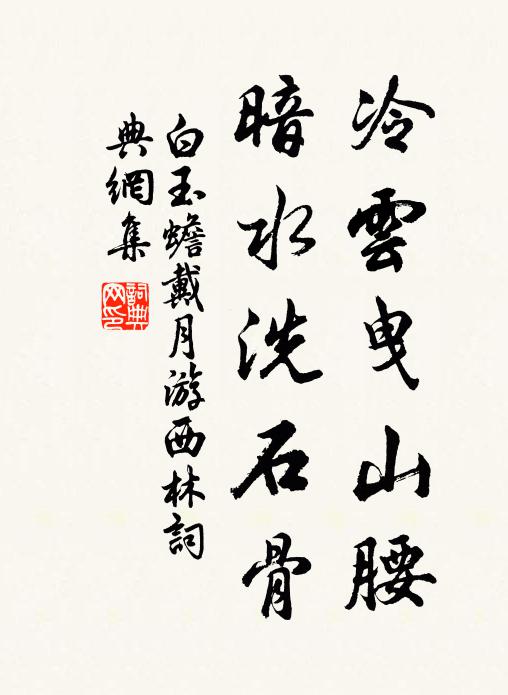 冷雲曳山腰
暗水洗石骨
白玉蟾戴月游西林詞
典網集
詞典
网印